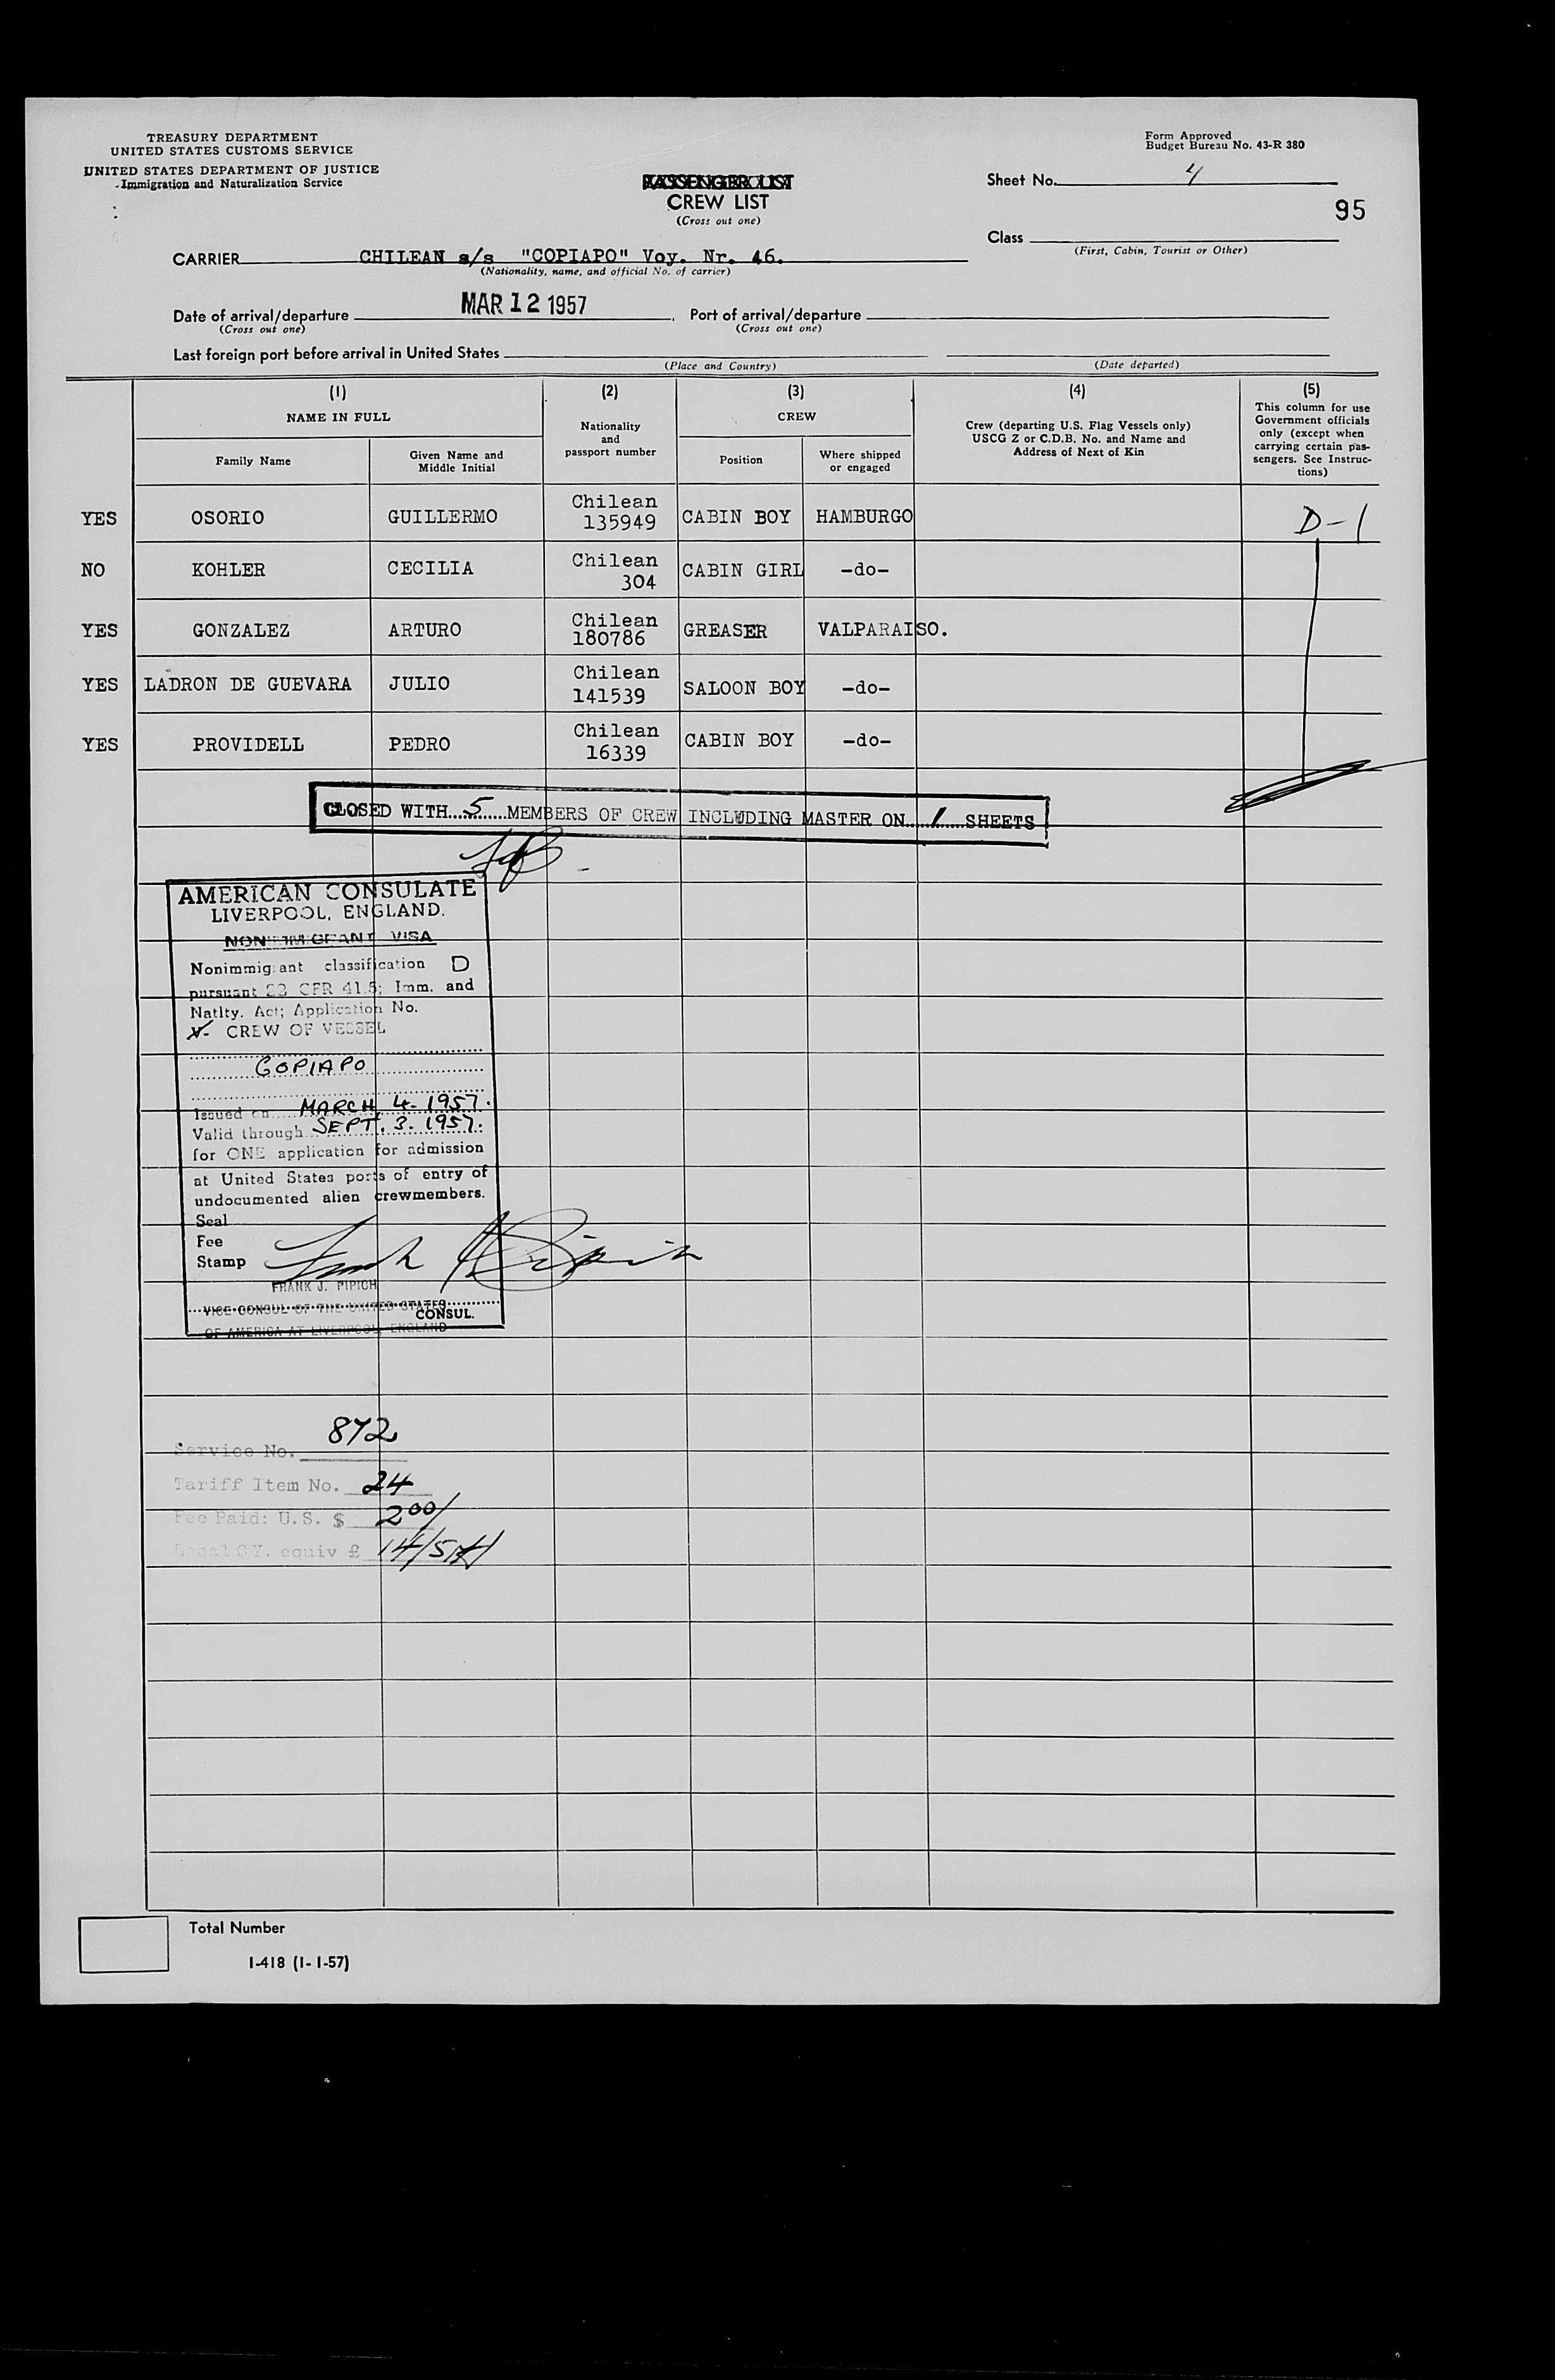 TREASURY DEPARTMENT
UNITED STATES CUSTOMS SERVICE
UNITED STATES DEPARTMENT OF JUSTICE
Immigration and Naturalization Service
Form Approved
Budget Bureau No. 43-R 380
PASSENGER LIST
CREW LIST
(Cross out one)
Sheet No. 4
95
Class
(First, Cabin, Tourist or Other)
CARRIER CHILEAN s/s "COPIAPO" Voy. Nr. 46.
(Nationality, name, and official No. of carrier)
Date of arrival/departure MAR 12 1957
(Cross out one)
Port of arrival/departure
(Cross out one)
Last foreign port before arrival in United States
(Place and Country)
(Date departed)
(1)
NAME IN FULL
Family Name
Given Name and
Middle Initial
(2)
Nationality
and
passport number
(3)
CREW
Position
Where shipped
or engaged
(4)
Crew (departing U.S. Flag Vessels only)
USCG Z or C.D.B. No. and Name and
Address of Next of Kin
(5)
This column for use
Government officials
only (except when
carrying certain pas-
sengers. See Instruc-
tions)
YES OSORIO GUILLERMO Chilean 135949 CABIN BOY HAMBURGO D-1
NO KOHLER CECILIA Chilean 304 CABIN GIRL -do-
YES GONZALEZ ARTURO Chilean 180786 GREASER VALPARAISO.
YES LADRON DE GUEVARA JULIO Chilean 141539 SALOON BOY -do-
YES PROVIDELL PEDRO Chilean 16339 CABIN BOY -do-
CLOSED WITH 5 MEMBERS OF CREW INCLUDING MASTER ON 1 SHEETS
AMERICAN CONSULATE
LIVERPOOL, ENGLAND.
NONIMMIGRANT VISA
Nonimmigrant classification D
pursuant 22 CFR 41.5; Imm. and
Natlty. Act; Application No.
V- CREW OF VESSEL
COPIAPO
Issued on MARCH 4. 1957.
Valid through SEPT. 3. 1957.
for ONE application for admission
at United States ports of entry of
undocumented alien crewmembers.
Seal
Fee
Stamp
FRANK J. PIPICH
VICE CONSUL OF THE UNITED STATES
CONSUL.
OF AMERICA AT LIVERPOOL, ENGLAND
Service No. 872
Tariff Item No. 24
Fee Paid: U.S. $ 2.00/
Local CY. equiv £ 14/5
Total Number
I-418 (1-1-57)